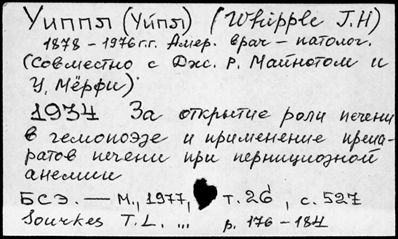 Уиппл (Уйпл) (Whipple J.H)
1878 – 1976 г.г. Амер. врач – патолог.
(Совместно с Дж. Р. Майнотом и
У. Мёрфи)
1934 За открытие роли печени
в гемопоэзе и применение препа-
ратов печени при пернициозной
анемии
БСЭ. — М., 1977, т. 26, с. 527
Sourkes T.L. „, p. 176 – 184